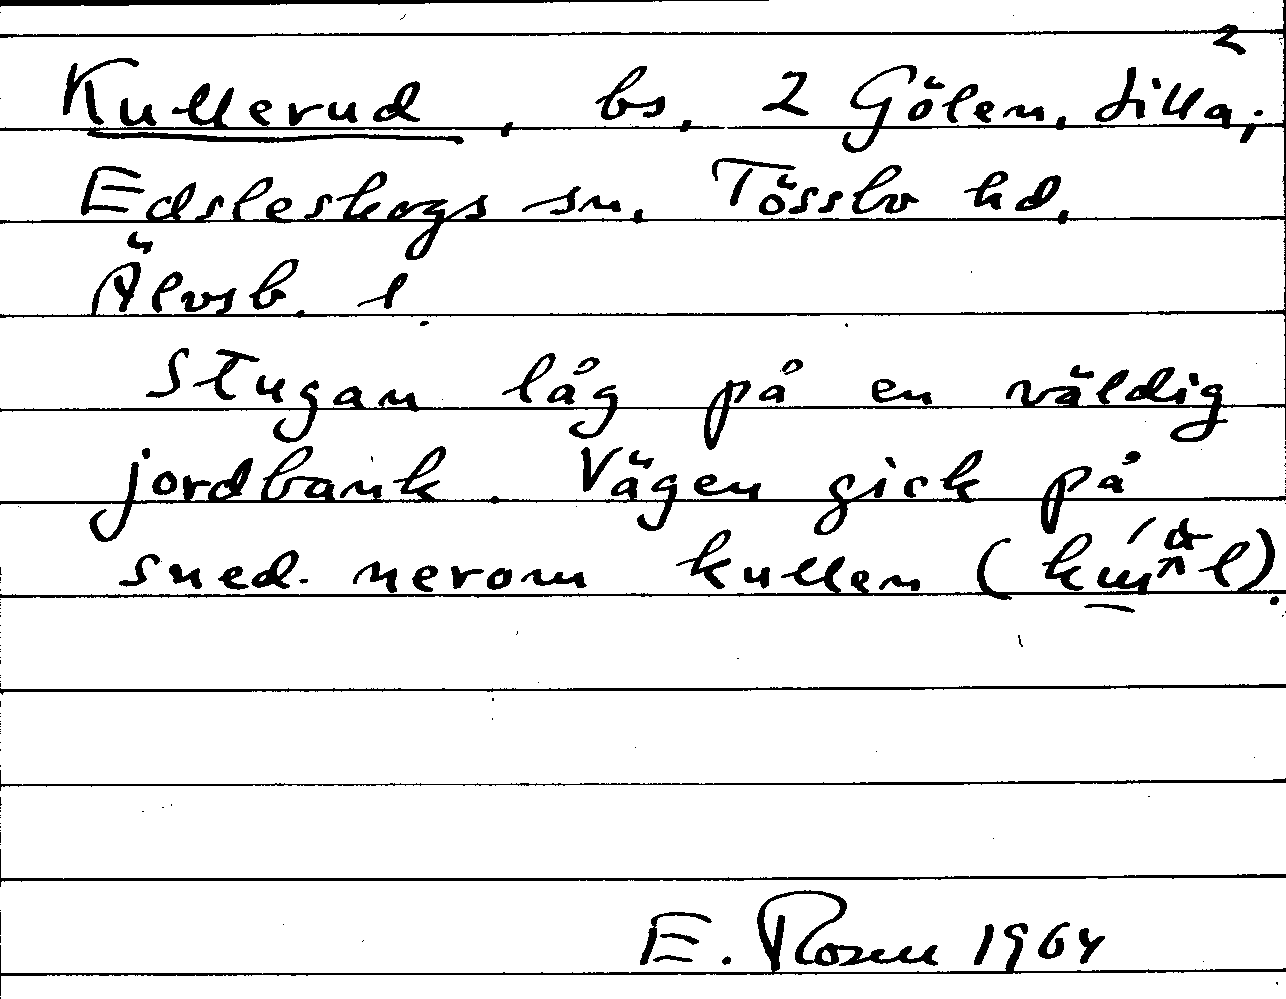 2
Kullerud, bs. 2 Gölen, Lilla;
Edsleskogs sn, Tössbo hd,
Älvsb. l.
Stugan låg på en väldig
jordbank. Vägen gick på
sned nerom kullen
E. Rosen 1964